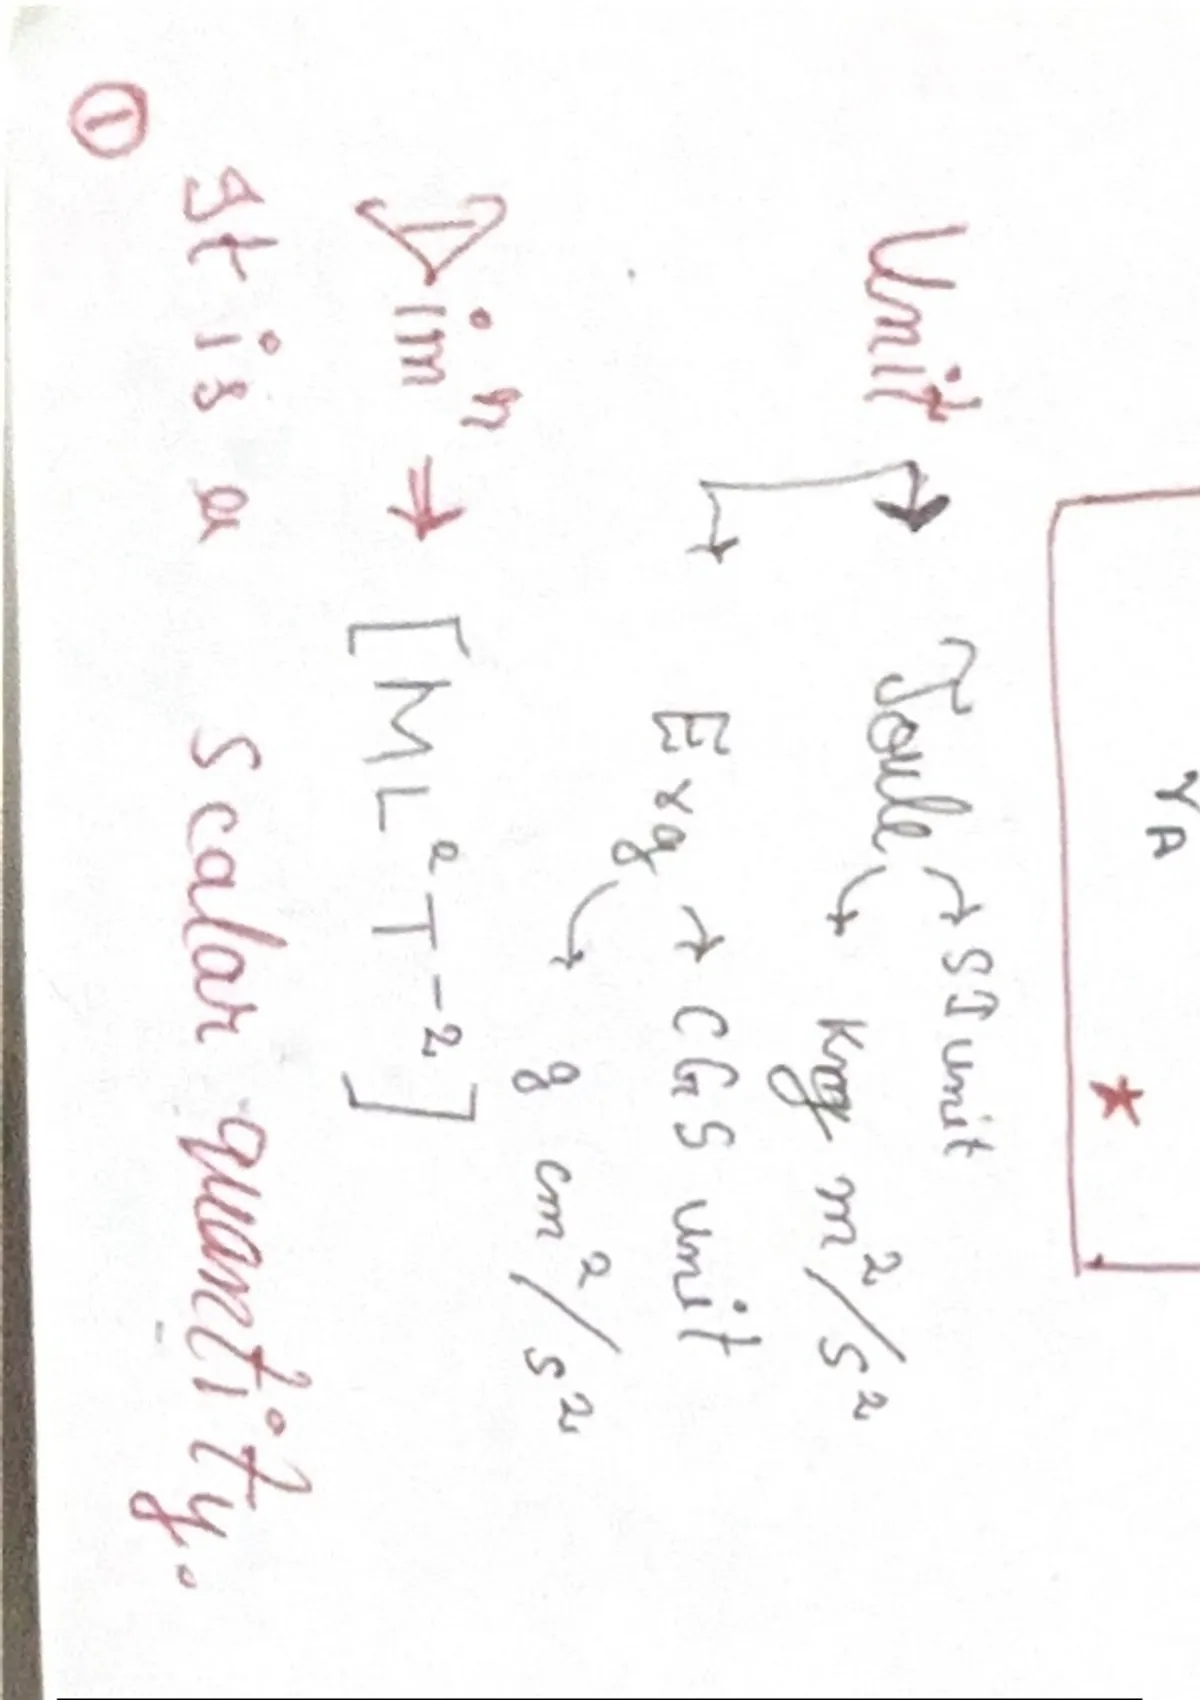 rA
*
Unit → Joule → SI unit
→ kg m²/s²
→ Erg → CGS unit
→ g cm²/s²
Dimⁿ → [ML²T⁻²]
① It is a scalar quantity.